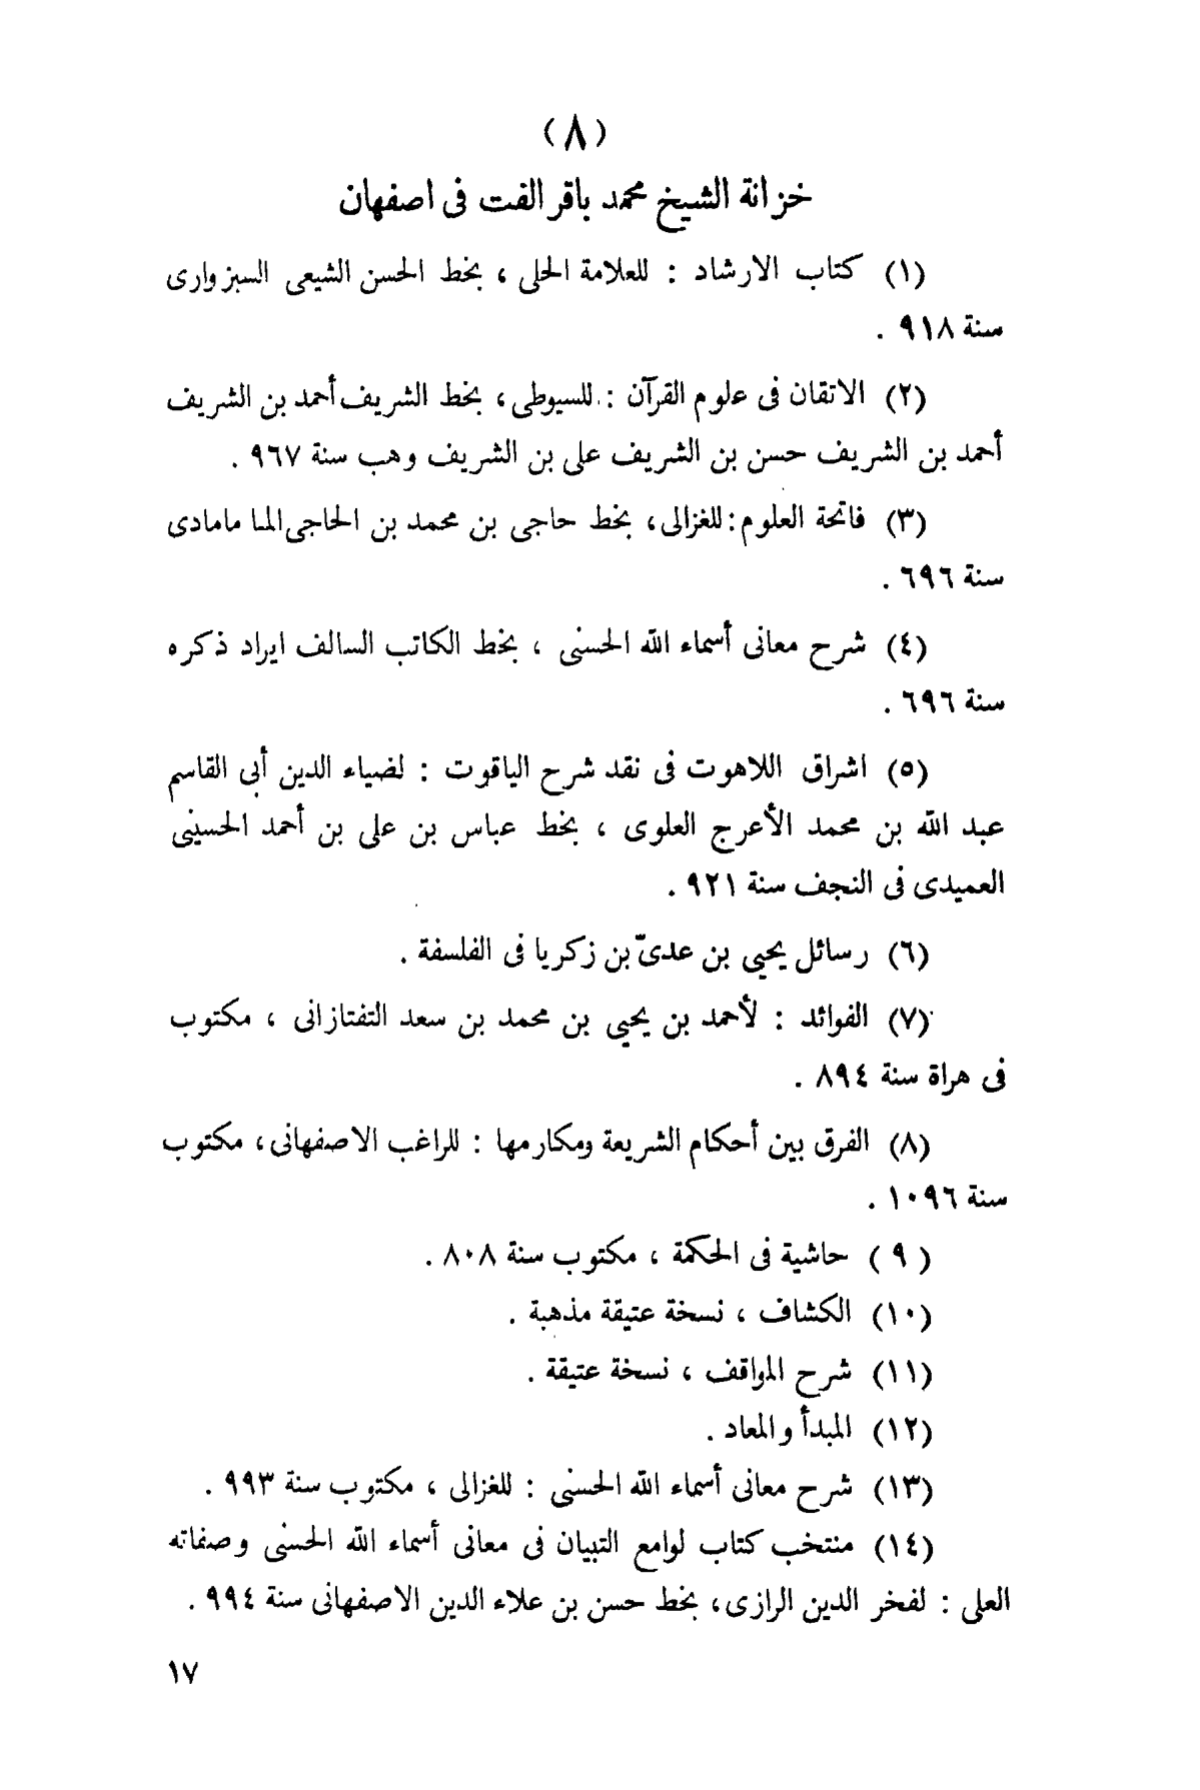 (٨)
خزانة الشيخ محمد باقر الفت فى اصفهان
(١) كتاب الارشاد : للعلامة الحلى ، بخط الحسن الشيعى السبزوارى
سنة ٩١٨ .
(٢) الاتقان فى علوم القرآن : للسيوطى ، بخط الشريف أحمد بن الشريف
أحمد بن الشريف حسن بن الشريف على بن الشريف وهب سنة ٩٦٧ .
(٣) فاتحة العلوم : للغزالى ، بخط حاجى بن محمد بن الحاجى الما مامادى
سنة ٦٩٦ .
(٤) شرح معانى أسماء الله الحسنى ، بخط الكاتب السالف ايراد ذكره
سنة ٦٩٦ .
(٥) اشراق اللاهوت فى نقد شرح الياقوت : لضياء الدين أبى القاسم
عبد الله بن محمد الأعرج العلوى ، بخط عباس بن على بن أحمد الحسينى
العميدى فى النجف سنة ٩٢١ .
(٦) رسائل يحيى بن عدىّ بن زكريا فى الفلسفة .
(٧) الفوائد : لأحمد بن يحيى بن محمد بن سعد التفتازانى ، مكتوب
فى هراة سنة ٨٩٤ .
(٨) الفرق بين أحكام الشريعة ومكارمها : للراغب الاصفهانى ، مكتوب
سنة ١٠٩٦ .
( ٩ ) حاشية فى الحكمة ، مكتوب سنة ٨٠٨ .
(١٠) الكشاف ، نسخة عتيقة مذهبة .
(١١) شرح المواقف ، نسخة عتيقة .
(١٢) المبدأ والمعاد .
(١٣) شرح معانى أسماء الله الحسنى : للغزالى ، مكتوب سنة ٩٩٣ .
(١٤) منتخب كتاب لوامع التبيان فى معانى أسماء الله الحسنى وصفاته
العلى : لفخر الدين الرازى ، بخط حسن بن علاء الدين الاصفهانى سنة ٩٩٤ .
١٧